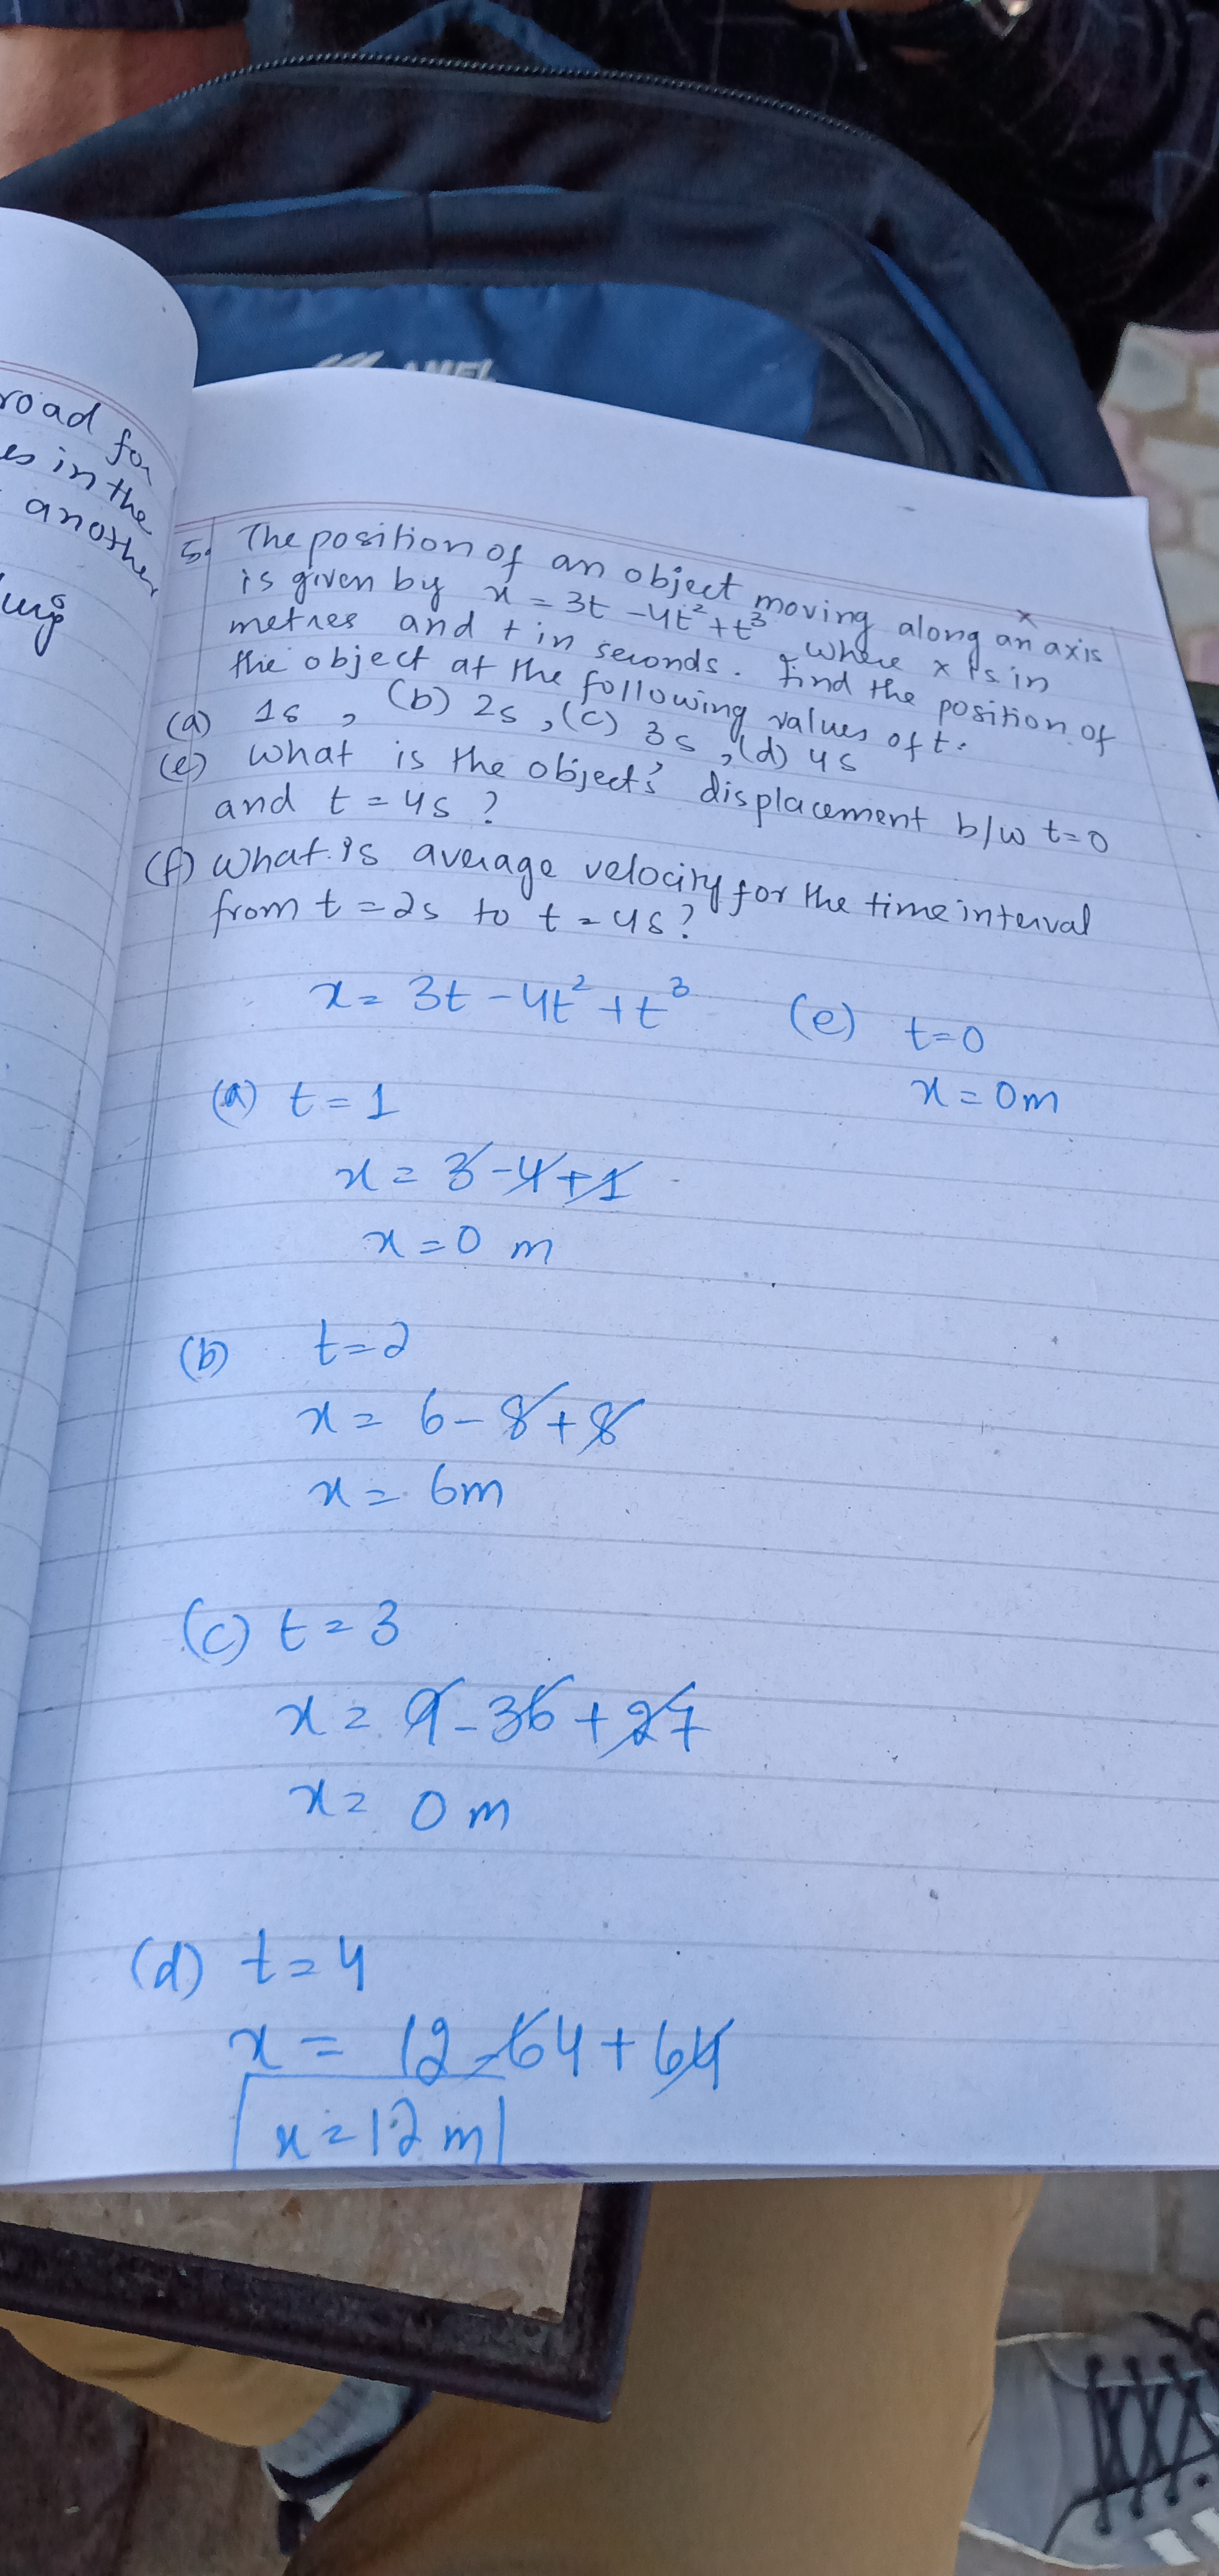 road for
es in the
another
AMEL
5. The position of an object moving along an x axis
is given by x = 3t - 4t² + t³ where x is in
metres and t in seconds. Find the position of
the object at the following values of t.
(a) 1s, (b) 2s, (c) 3s, (d) 4s
(e) What is the object's displacement b/w t=0
and t = 4s ?
(f) What is average velocity for the time interval
from t = 2s to t = 4s ?
x = 3t - 4t² + t³
(a) t = 1
x = 3 - 4 + 1
x = 0 m
(b) t = 2
x = 6 - 8 + 8
x = 6m
(c) t = 3
x = 9 - 36 + 27
x = 0 m
(d) t = 4
x = 12 - 64 + 64
x = 12 m
(e) t = 0
x = 0m